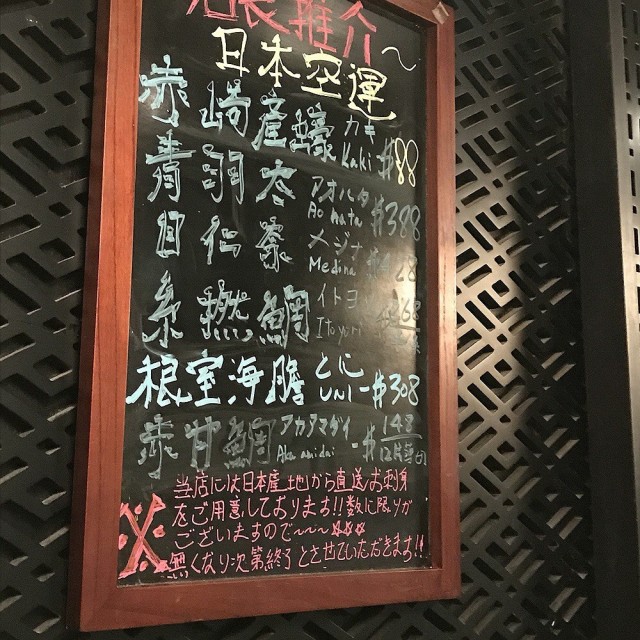 店長推介
日本空運～
赤崎産蠔 カキ Kaki $88
青羽太 アオハタ Ao hata $388
目仁奈 メジナ Medina $428
糸撚鯛 イトヨリ Itoyori $268
根室海膽 $308
赤甘鯛 アカアマダイ Aka amidai - $148
当店には日本産地から直送お刺身
をご用意しております!!数に限りが
ございますので～～
※ 無くなり次第終了とさせていただきます!!